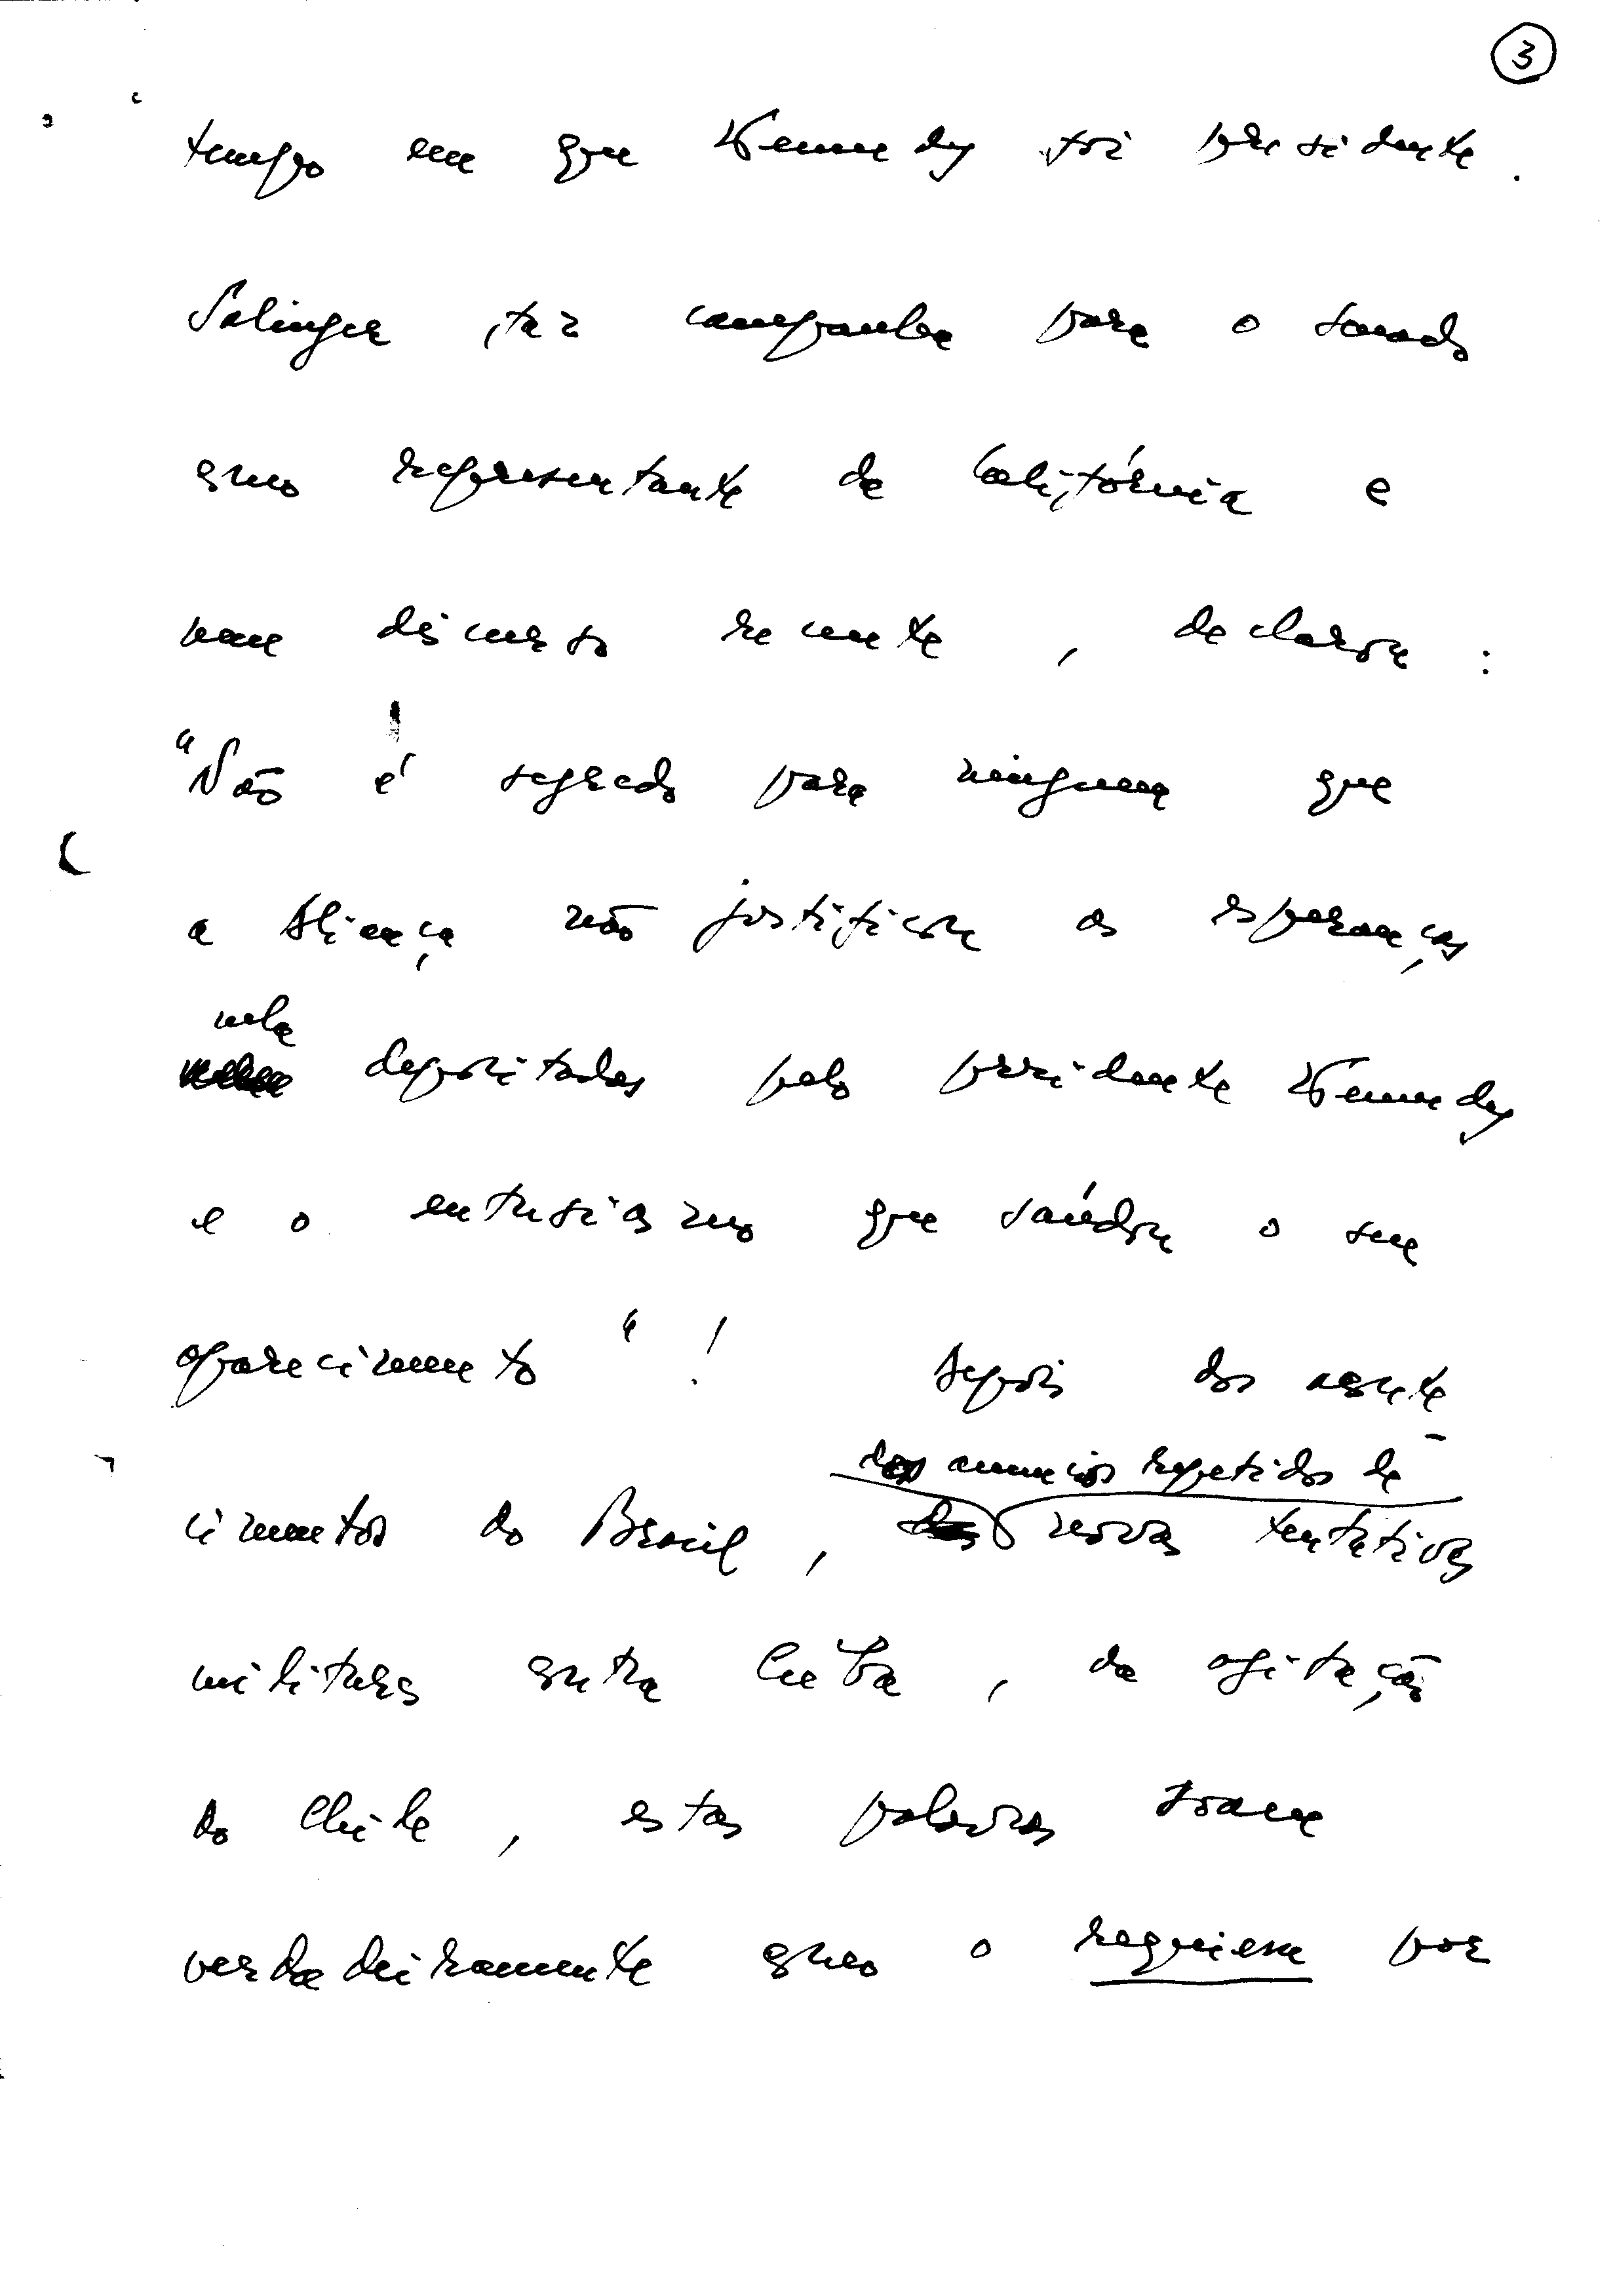 3
tempo em que Kennedy foi presidente.
Salinger faz campanha para o senado
como representante da Califórnia e
num discurso recente, declarou:
"Não é segredo para ninguem que
a Aliança não justificou as esperanças
nela
depositadas pelo presidente Kennedy
e o entusiasmo que saúdou o seu
aparecimento"! Depois dos aconte-
dos anuncios repetidos de
cimentos do Brasil, novas tentativas
militares contra Cuba, da agitação
do Chile, estas palavras soam
verdadeiramente como o requiem por